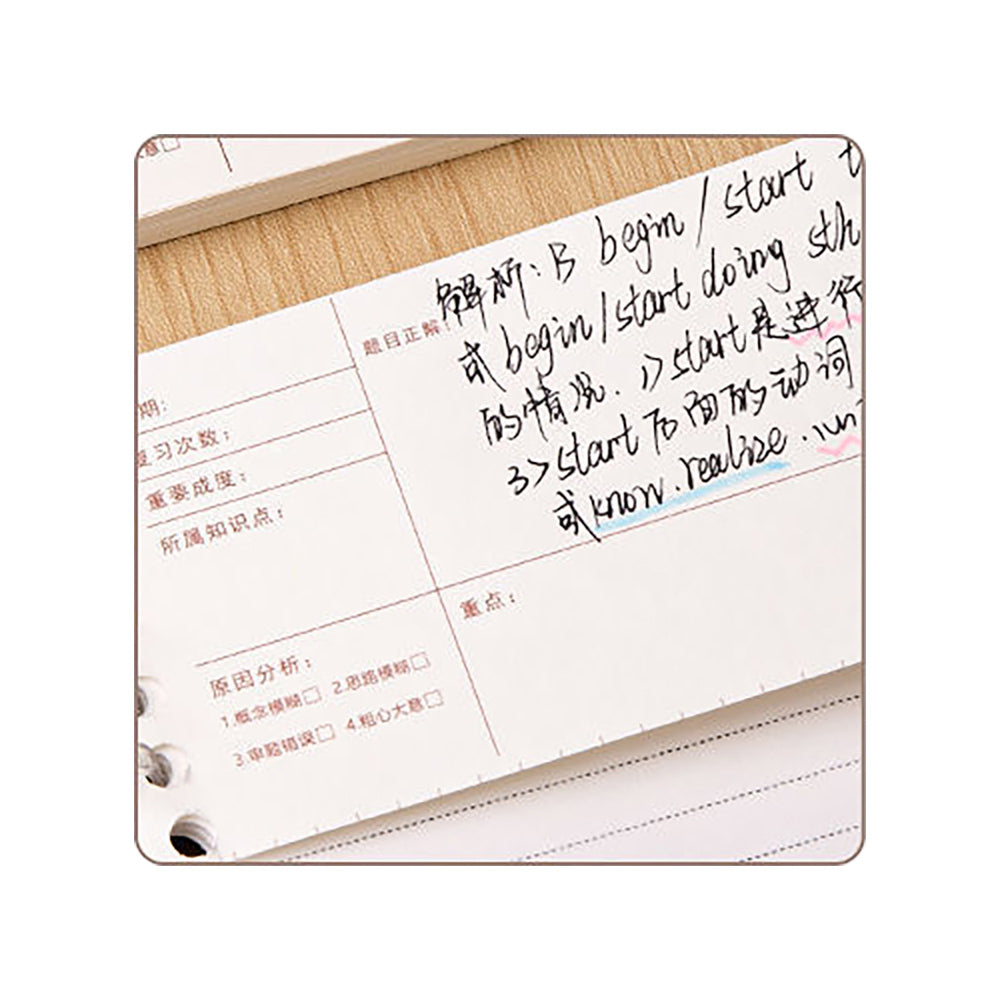 意□
解析：B begin / start t
或 begin / start doing sth
的情况. 1> start是进行
3> start后面的动词
或know. realize .
题目正解：
期：
复习次数：
重要成度：
所属知识点：
原因分析：
1.概念模糊□ 2.思路模糊□
3.审题错误□ 4.粗心大意□
重点：